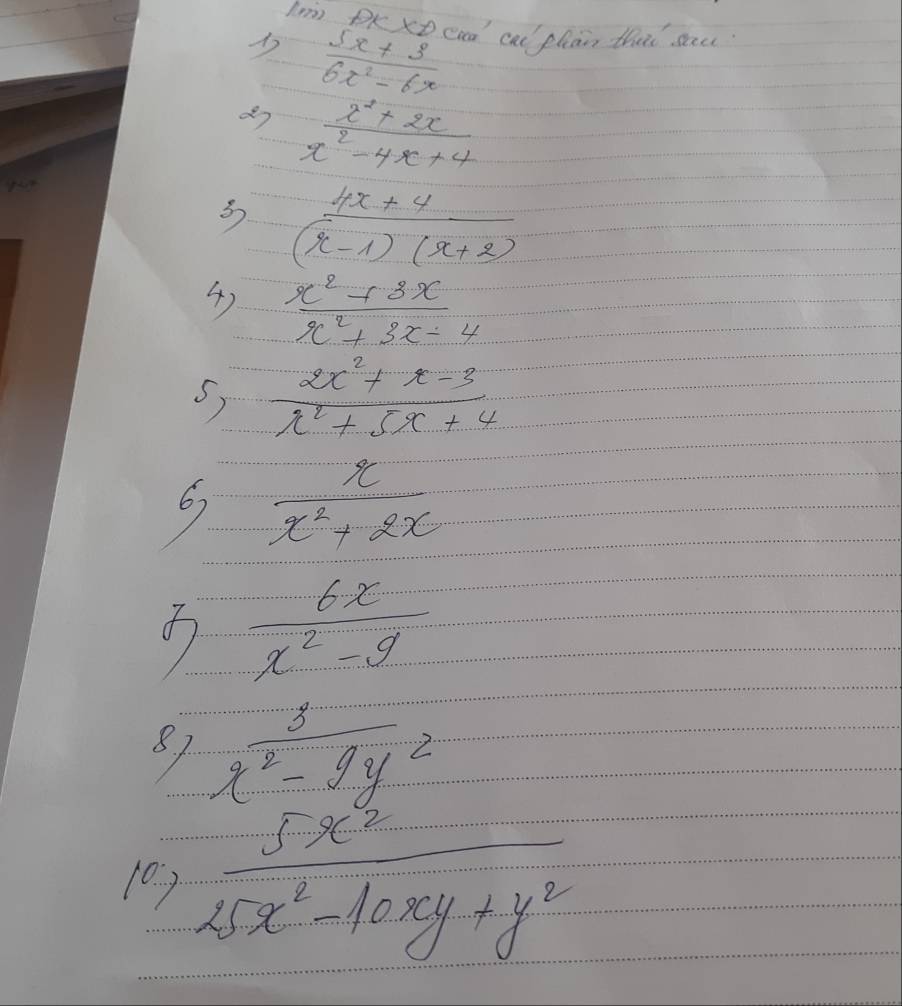 Tìm ĐKXĐ của các phân thức sau.
1) 5x + 3
6x² - 6x
2) x² + 2x
x² - 4x + 4
3) 4x + 4
(x - 1) (x + 2)
4) x² + 3x
x² + 3x - 4
5) 2x² + x - 3
x² + 5x + 4
6) x
x² + 2x
7) 6x
x² - 9
8) 3
x² - 9y²
10) 5x²
25x² - 10xy + y²